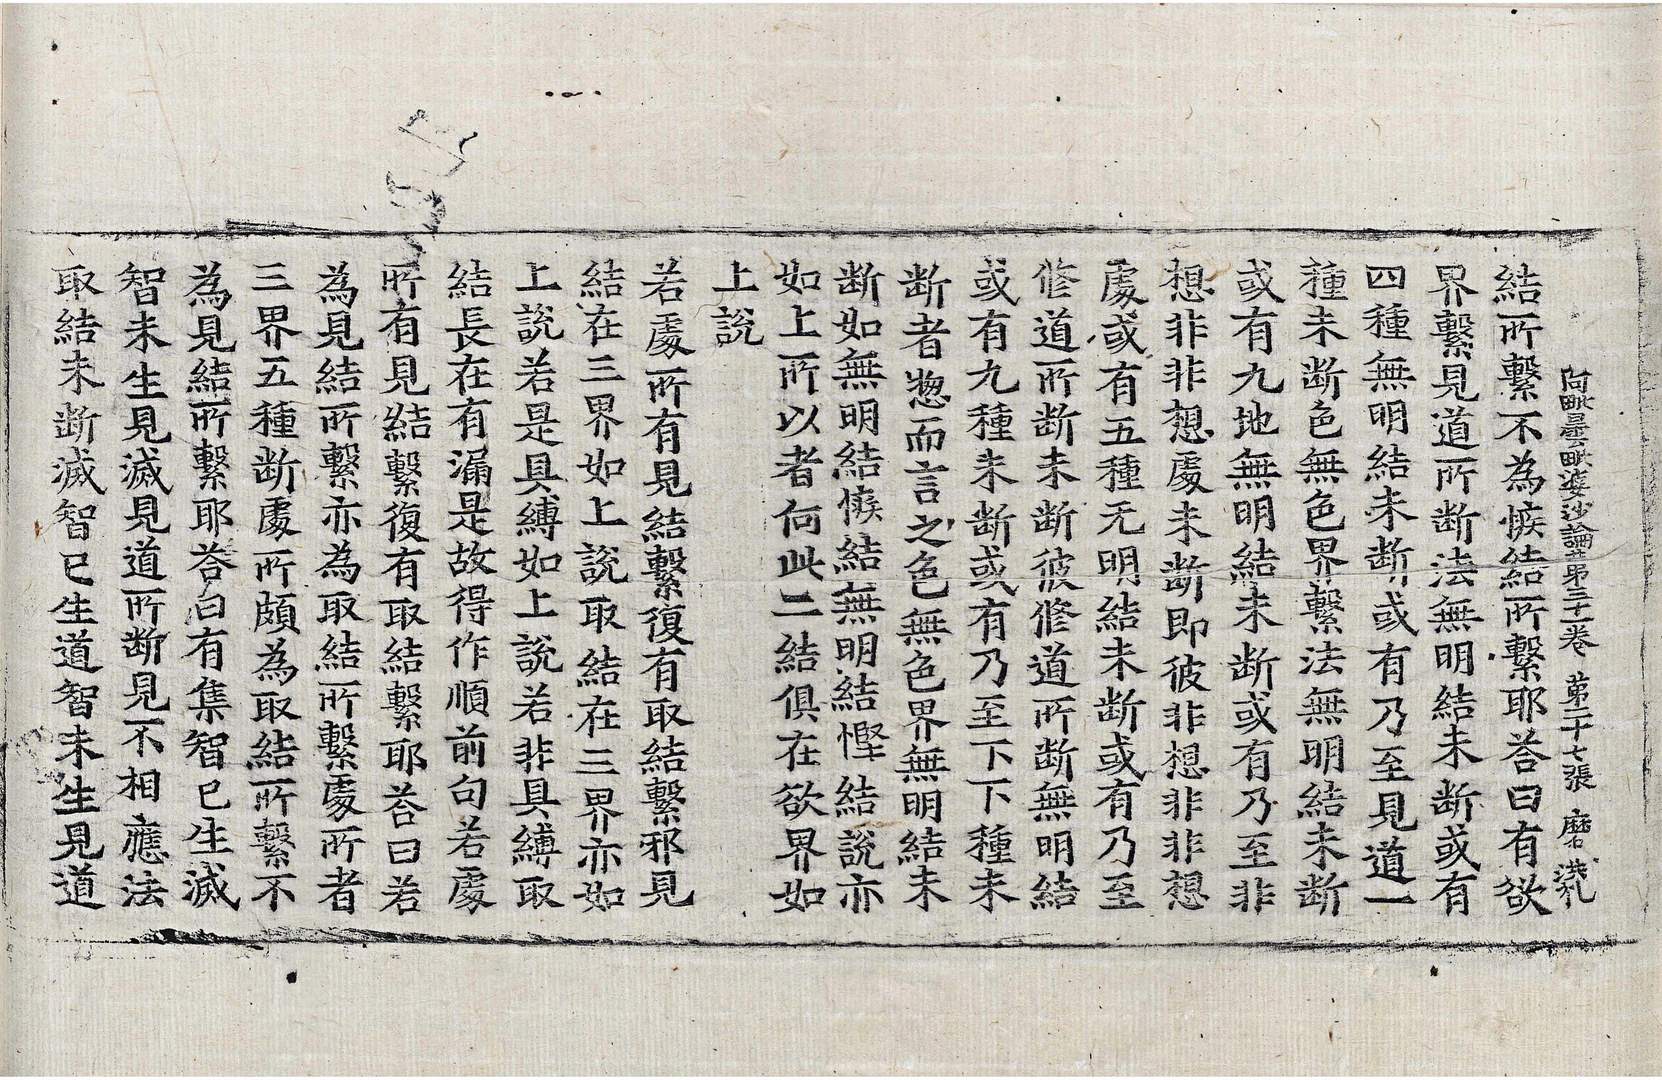 阿毗曇毗婆沙論第三十一卷 第二十七張 磨
結所繫不為悷結所繫耶荅曰有欲
界繫見道所斷法無明結未斷或有
四種無明結未斷或有乃至見道一
種未斷色無色界繫法無明結未斷
或有九地無明結未斷或有乃至非
想非非想處未斷即彼非想非非想
處或有五種无明結未斷或有乃至
修道所斷未斷彼修道所斷無明結
或有九種未斷或有乃至下下種未
斷者惣而言之色無色界無明結未
斷如無明結悷結無明結慳結說亦
如上所以者何此二結俱在欲界如
上說
若處所有見結繫復有取結繫邪見
結在三界如上說取結在三界亦如
上說若是具縛如上說若非具縛取
結長在有漏是故得作順前句若處
所有見結繫復有取結繫耶荅曰若
為見結所繫亦為取結所繫處所者
三界五種斷處所頗為取結所繫不
為見結所繫耶荅曰有集智已生滅
智未生見滅見道所斷見不相應法
取結未斷滅智已生道智未生見道